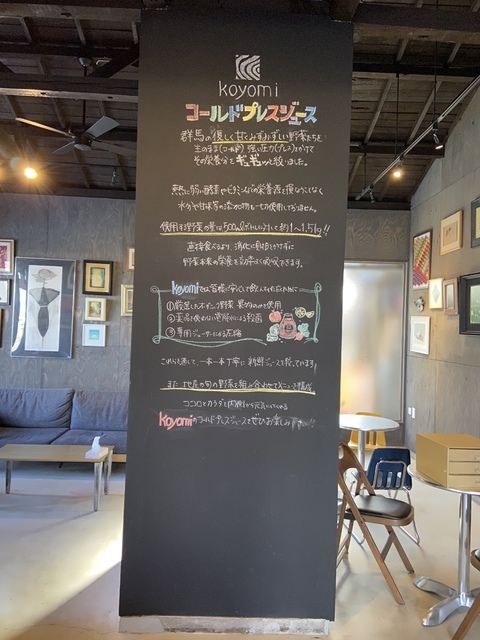 koyomi
コールドプレスジュース
群馬の優しく甘くみずみずしい野菜たちを
生のまま(コールド) 強い圧力(プレス)かけて
その栄養分をギュギュッと絞りました。
熱に弱い酵素やビタミンなどの栄養価を損なうことなく
水分や甘味等の添加物も一切使用しておりません。
使用する野菜の量は500mlボトルに対して約1〜1.5kg!!
直接食べるより、消化に負担をかけずに
野菜本来の栄養を効率よく吸収できます。
koyomiでは皆様に安心して飲んでいただくために
①厳選した 野菜 果物のみを使用
②薬品を使わない 殺菌
③専用ジューサーによる圧搾
これらを通して、一本一本丁寧に 新鮮ジュースを絞っています
また 地産の旬の野菜を組み合わせて 構成
ココロとカラダを内側から元気に
koyomiのコールドプレスジュースをぜひお楽しみ